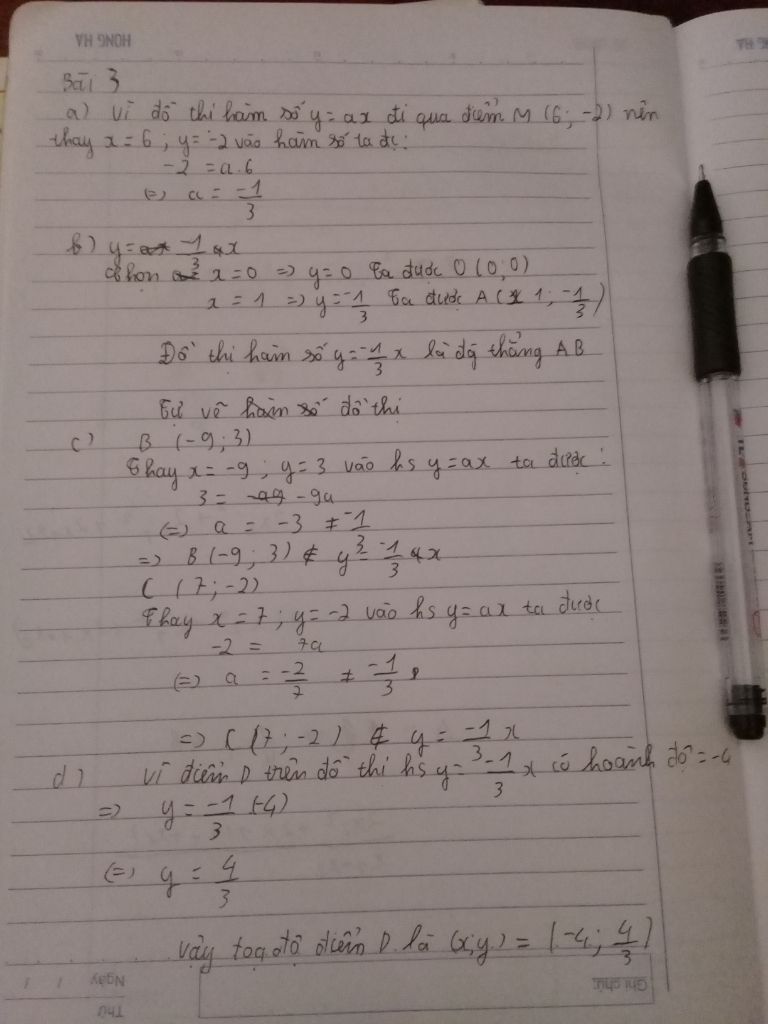 Bài 3
a) Vì đồ thị hàm số y=ax đi qua điểm M (6; -2) nên
thay x=6; y=-2 vào hàm số ta đc:
-2 = a.6
(=) a = -1/3
b) y= -1/3 x
Chọn x=0 => y=0 Ta được O(0;0)
x=1 => y=-1/3 Ta được A(1; -1/3)
Đồ thị hàm số y=-1/3 x là đg thẳng AB
Tự vẽ hàm số đồ thị
c) B (-9; 3)
Thay x=-9; y=3 vào hs y=ax ta được:
3 = -9a
(=) a = -3 ≠ -1/3
=> B(-9; 3) ∉ y = -1/3 x
C (7; -2)
Thay x=7; y=-2 vào hs y=ax ta được
-2 = 7a
(=) a = -2/7 ≠ -1/3
=> C(7; -2) ∉ y = -1/3 x
d) Vì điểm D trên đồ thị hs y= -1/3 x có hoành độ = -4
=> y = -1/3 (-4)
(=) y = 4/3
Vậy toạ độ điểm D là (x;y) = (-4; 4/3)
HONG HA
Ngày / /
Thứ
Ghi chú: